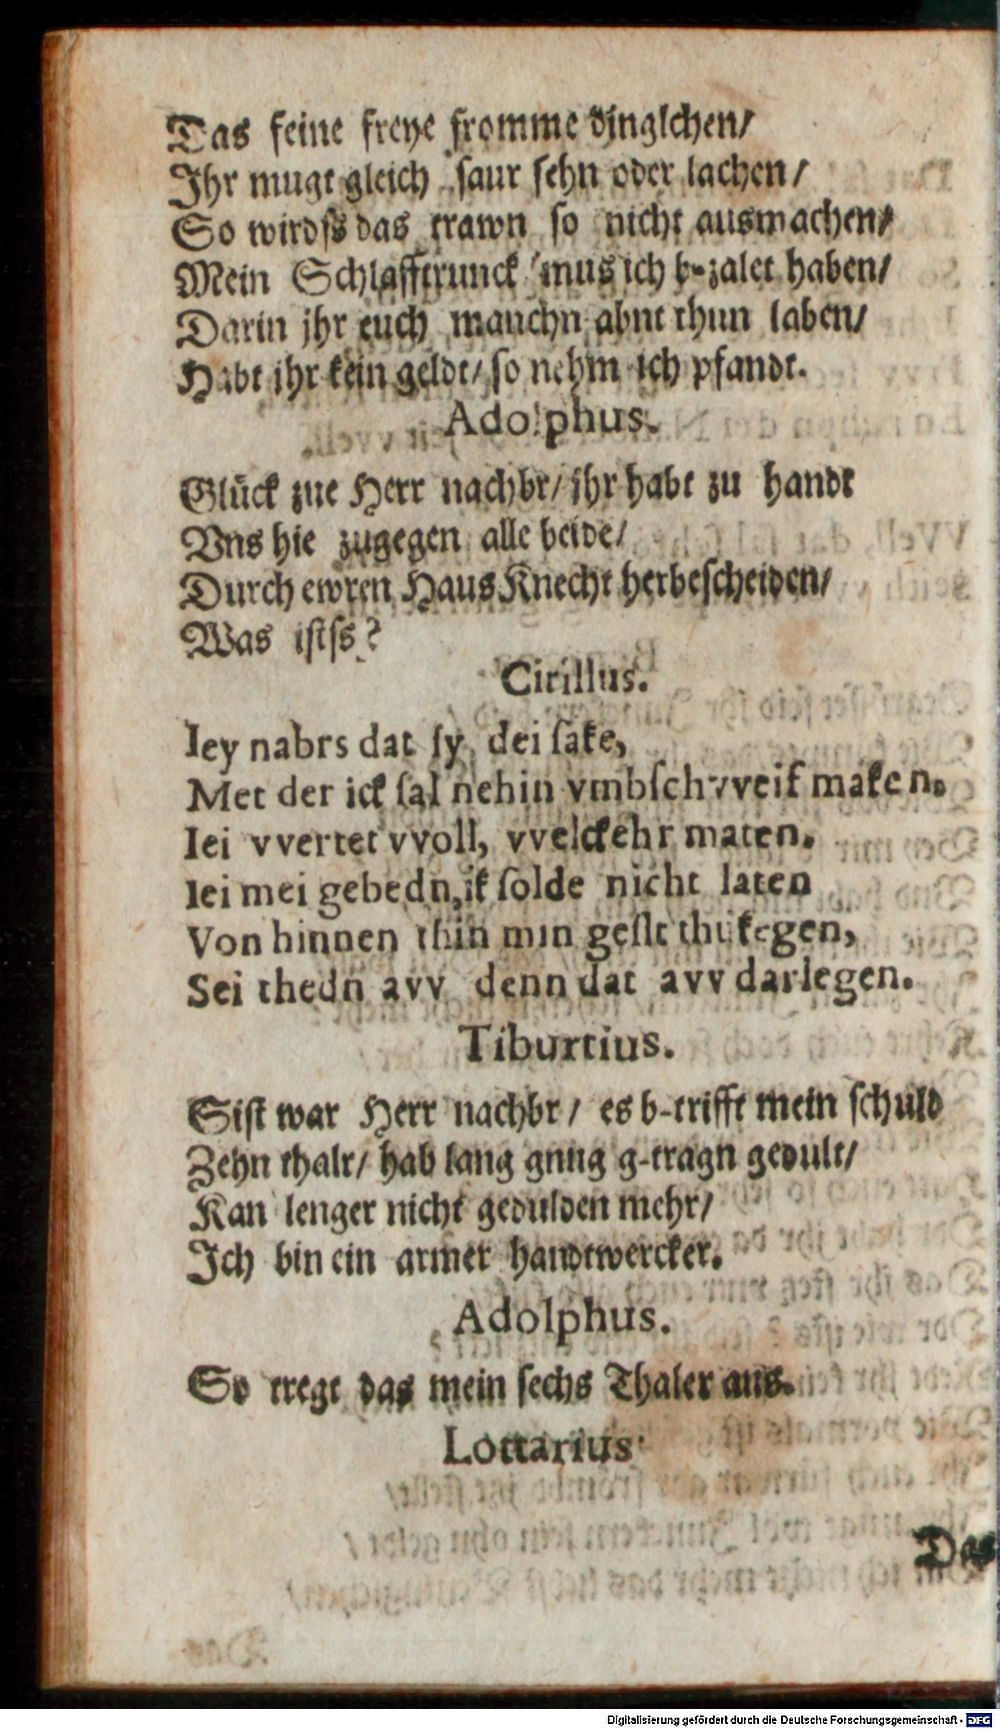 Das feine freye fromme djnglchen/
Ihr mugt gleich saur sehn oder lachen/
So wirdſs das trawn so nicht ausmachen/
Mein Schlafftrunck mus ich b-zalet haben/
Darin jhr euch manchn abnt thun laben/
Habt jhr kein geldt/ so nehm ich pfandt.
Adolphus.
Glück zue Herr nachbr/ jhr habt zu handt
Vns hie zugegen alle beide/
Durch ewren Haus Knecht herbescheiden/
Was iſtſs?
Cirillus.
Iey nabrs dat ſy dei ſake,
Met der ick ſal nehin vmbſchvveif maken.
Iei vvertet vvoll, vvelckehr maten.
Iei mei gebedn, ik ſolde nicht laten
Von hinnen thin min geſlt thukegen,
Sei thedn avv denn dat avv darlegen.
Tiburtius.
Siſt war Herr nachbr/ es b-trifft mein ſchuld
Zehn thalr/ hab lang gnug g-tragn gedult/
Kan lenger nicht gedulden mehr/
Ich bin ein armer handtwercker.
Adolphus.
So tregt das mein ſechs Thaler aus.
Lottarius
Das
Digitalisierung gefördert durch die Deutsche Forschungsgemeinschaft - DFG